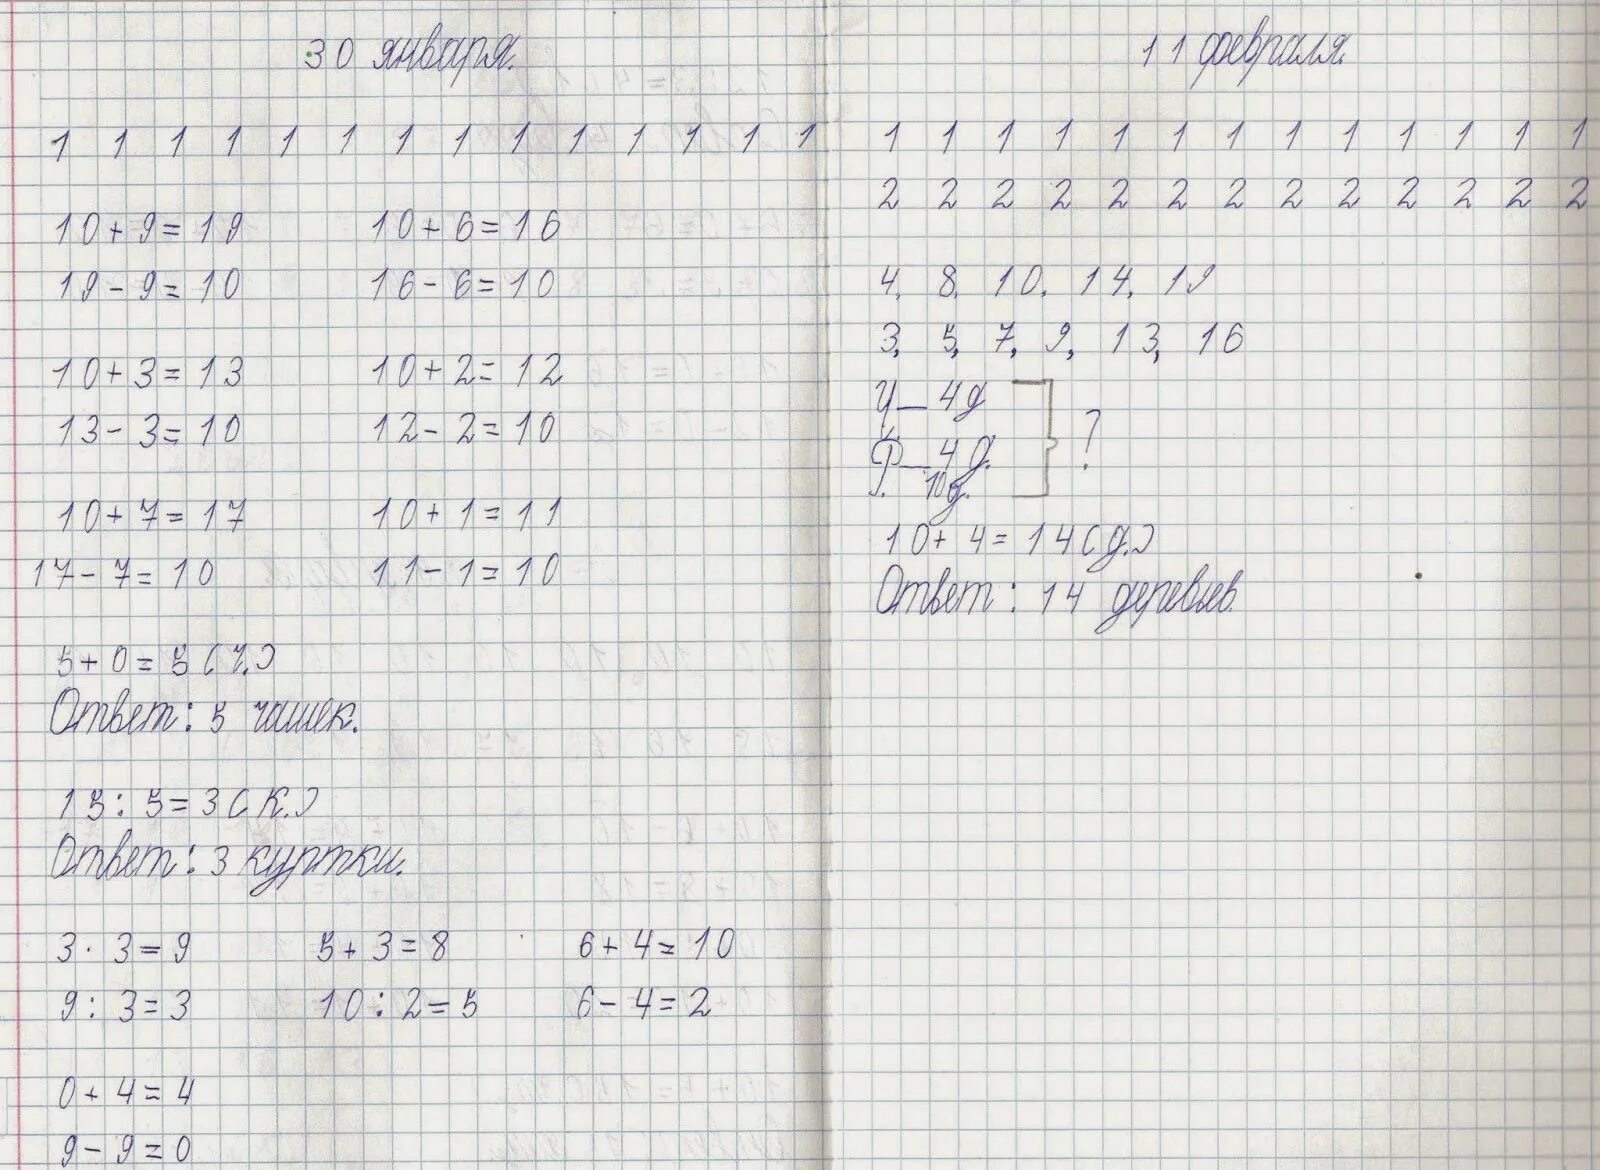 30 января.
1 1 1 1 1 1 1 1 1 1 1 1 1 1
10 + 9 = 19 10 + 6 = 16
19 - 9 = 10 16 - 6 = 10
10 + 3 = 13 10 + 2 = 12
13 - 3 = 10 12 - 2 = 10
10 + 7 = 17 10 + 1 = 11
17 - 7 = 10 11 - 1 = 10
5 + 0 = 5 (ч.)
Ответ: 5 чашек.
15 : 5 = 3 (к.)
Ответ: 3 куртки.
3 · 3 = 9 5 + 3 = 8 6 + 4 = 10
9 : 3 = 3 10 : 2 = 5 6 - 4 = 2
0 + 4 = 4
9 - 9 = 0
11 февраля.
1 1 1 1 1 1 1 1 1 1 1 1 1
2 2 2 2 2 2 2 2 2 2 2 2 2
4, 8, 10, 14, 19
3, 5, 7, 9, 13, 16
- 4 д
- 4 д. ?
10 д.
10 + 4 = 14 (д.)
Ответ: 14 деревьев.